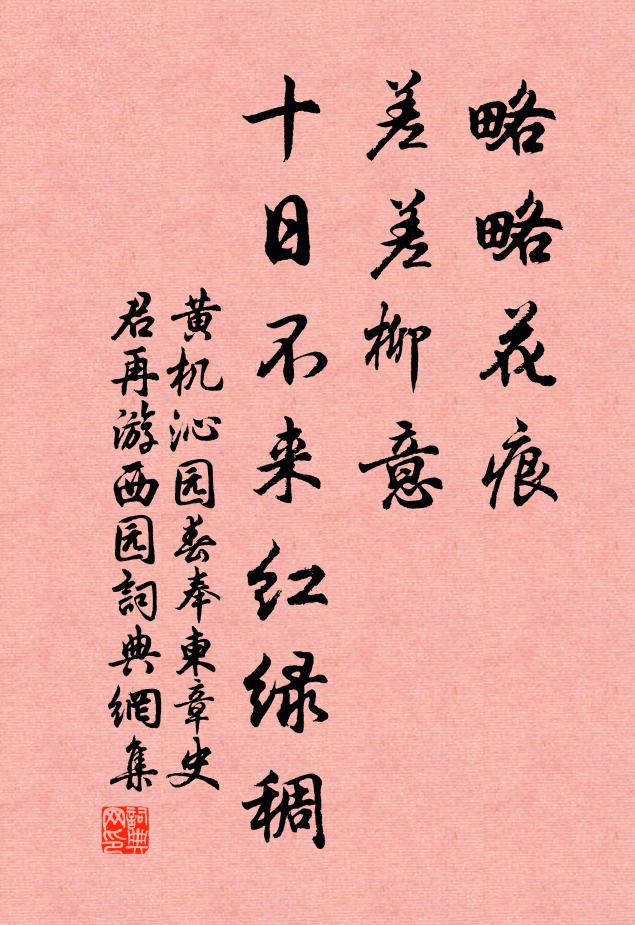 略略花痕
差差柳意
十日不来红绿稠
黄机沁园春奉東章史
君再游西园詞典網集
詞典网印